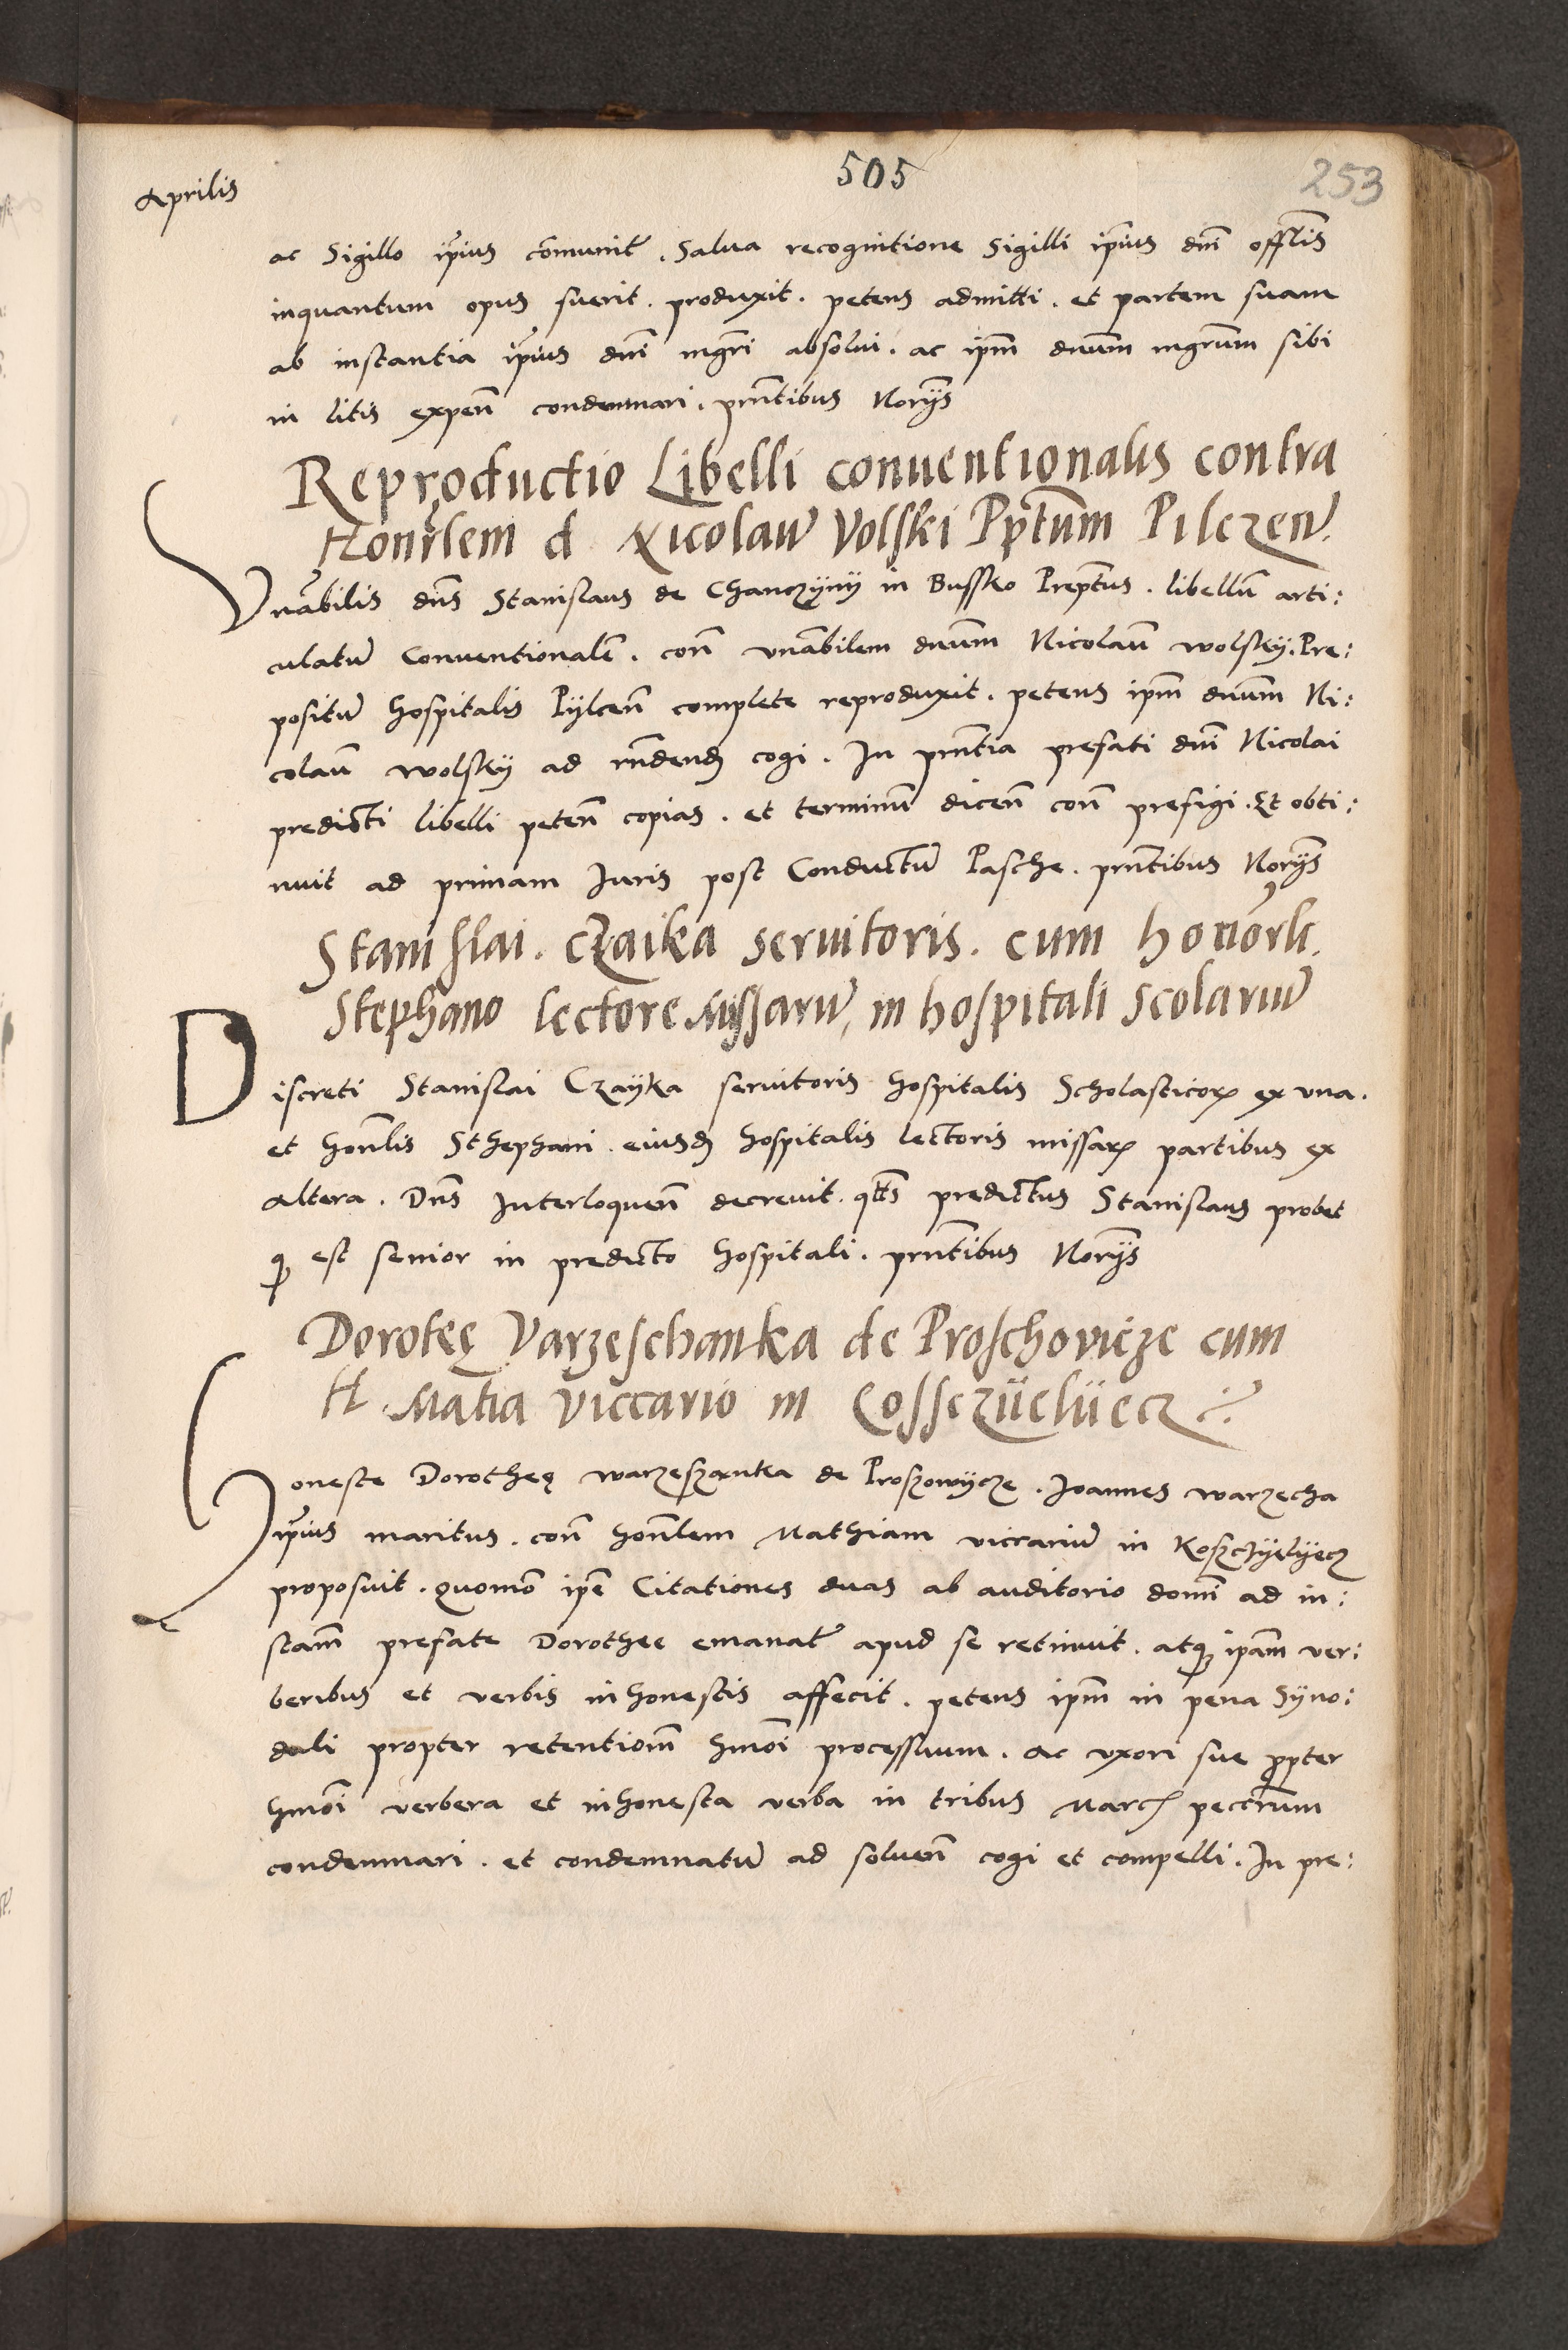 505
253
Aprilis
ac Sigillo ip̃ius com̃unit̃ . Salua recognitione Sigilli ip̃ius dnĩ offl̃is
inquantum opus fuerit . produxit . petens admitti . et partem suam
ab instantia ip̃ius dnĩ mgr̃i absolui . ac ipm̃ dnũm mgr̃um sibi
in litis expeñ condemnari . prñtibus Norĩjs
Reproductio Libelli conuentionalis contra
Honr̃lem d Nicolaũ Volski Pp̃tum Pilczeñ.
Vnãbilis dñs Stanislaus de Chanczÿnÿ in Bussko Prep̃tus . libellũ arti:
culatũ Conuentionalẽ . coñ vnãbilem dnũm Nicolaũ wolskÿ . Pre:
positũ hospitalis Pÿlceñ complete reproduxit . petens ipm̃ dnũm Ni:
colaũ wolskÿ ad rñdendꝫ cogi . In prñtia prefati dnĩ Nicolai
predicti libelli peteñ copias . et terminũ diceñ coñ prefigi . Et obti:
nuit ad primam Iuris post Conductũ Pasche . prñtibus Norĩjs
Stanislai . Czaika seruitoris . cum honorli.
Stephano lectore Missarũ, in hospitali scolariũ
Discreti Stanislai Czaÿka seruitoris hospitalis Scholasticoꝝ ex vna .
et honl̃is Sthephani . eiusdꝫ hospitalis lectoris missaꝝ partibus ex
altera . Dñs Interloqueñ decreuit . qt̃s predictus Stanislaus probet
ꝙ est senior in predicto hospitali . prñtibus Norĩjs
Doroteę Varzeschanka de Proschovicze cum
H . Matia viccario in Cossczüelüecz
Honeste Dorotheę warzeszanka de Proszowÿcze . Joannes warzecha
ip̃ius maritus . coñ honl̃em Mathiam viccariũ in Koszczÿelÿecz
proposuit . quomõ ip̃e Citationes duas ab auditorio domĩ ad in:
stam̃ prefate Dorothee emanat̃ apud se retinuit . atqꝫ ipam̃ ver:
beribus et verbis inhonestis affecit . petens ipm̃ in pena Sÿno:
dali propter retentiom̃ hmoĩ processuum . ac vxori sue ꝓpter
hmoĩ verbera et inhonesta verba in tribus Marcꝭ peccũm
condemnari . et condemnatũ ad solueñ cogi et compelli . In pre: